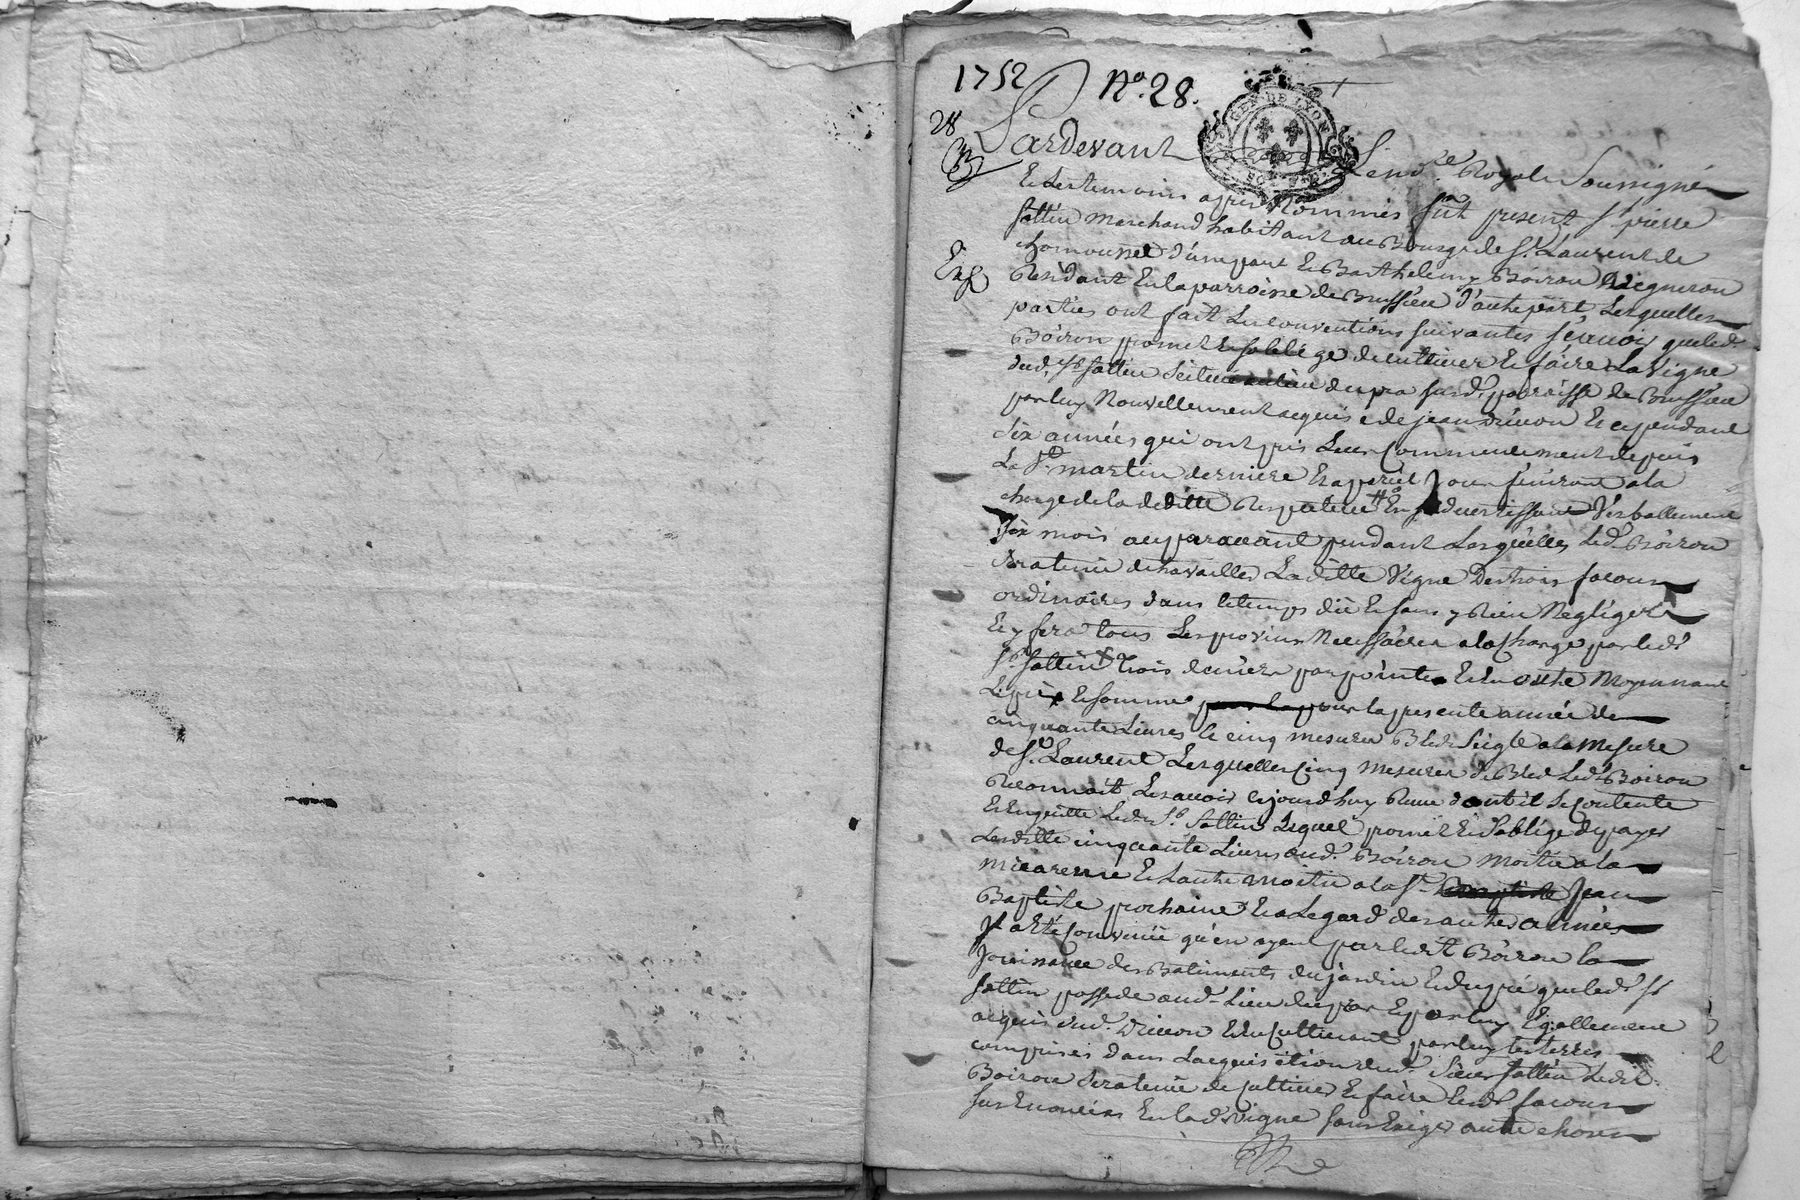 1752 No. 28.
28
GEN DE LYON
Pardevant Le no.re Royal Soussigné
Et les temoins apres Nommés fut present Sr pierre
fattin marchand habitant au Bourg de St. Laurent de
chamousset d'une part Et Barthelemy Boiron Vigneron
Enr
Residant En la parroisse de Brussieu d'autre part Lesquelles
parties ont fait Les conventions suivantes sçavoir que led.
Boiron promet Et soblige de cultiver Et faire La Vigne
dud. Sr fattin scituée du pra susd. parroisse de Brussieu
par luy Nouvellement acquise de jean Et ce pendant
six années qui ont pris Leur Commencement depuis
La St martin derniere Et a pareil Jour finiront a la
charge de la deditte Respective En s'advertissant Verballement
six mois auparavant pendant Lesquelles led. Boiron
sera tenu de travailler Laditte Vigne Des trois facons
ordinaires dans le temps dû Et sans y Rien Negliger
Et y fera tous Les provins Necessaires a la Charge par led.
Sr fattin trois deniers par pointe Et En outre Moyennant
Le prix Et somme pour la presente année de
cinquante Livres Et cinq mesures Bled Seigle a la Mesure
de St. Laurent Lesquelles Cinq mesures de Bled Led. Boiron
Reconnoit Les avoir cejourdhuy Reçue dont il se contente
Et En quitte Led. Sr. fattin Lequel promet Et soblige de payer
Lesditte cinquante Livres aud. Boiron Moitié a la
micareme Et L'autre moitié a la St. Jean
Baptiste prochaine Et a Legard des autres années
Il a été Convenu qu'en ayant par led. Boiron la
Jouissance des Batiments du jardin Et du pré que led. Sr
fattin possede aud. Lieu du pra Et par luy Egallement
acquis dud. Et En Cultivant par luy les terres
comprises dans Lacquisition dud. Sieur fattin Ledit
Boiron sera tenu de Cultiver Et faire Lesd. facons
sus Enoncées En lad. Vigne sans Exiger autre chose